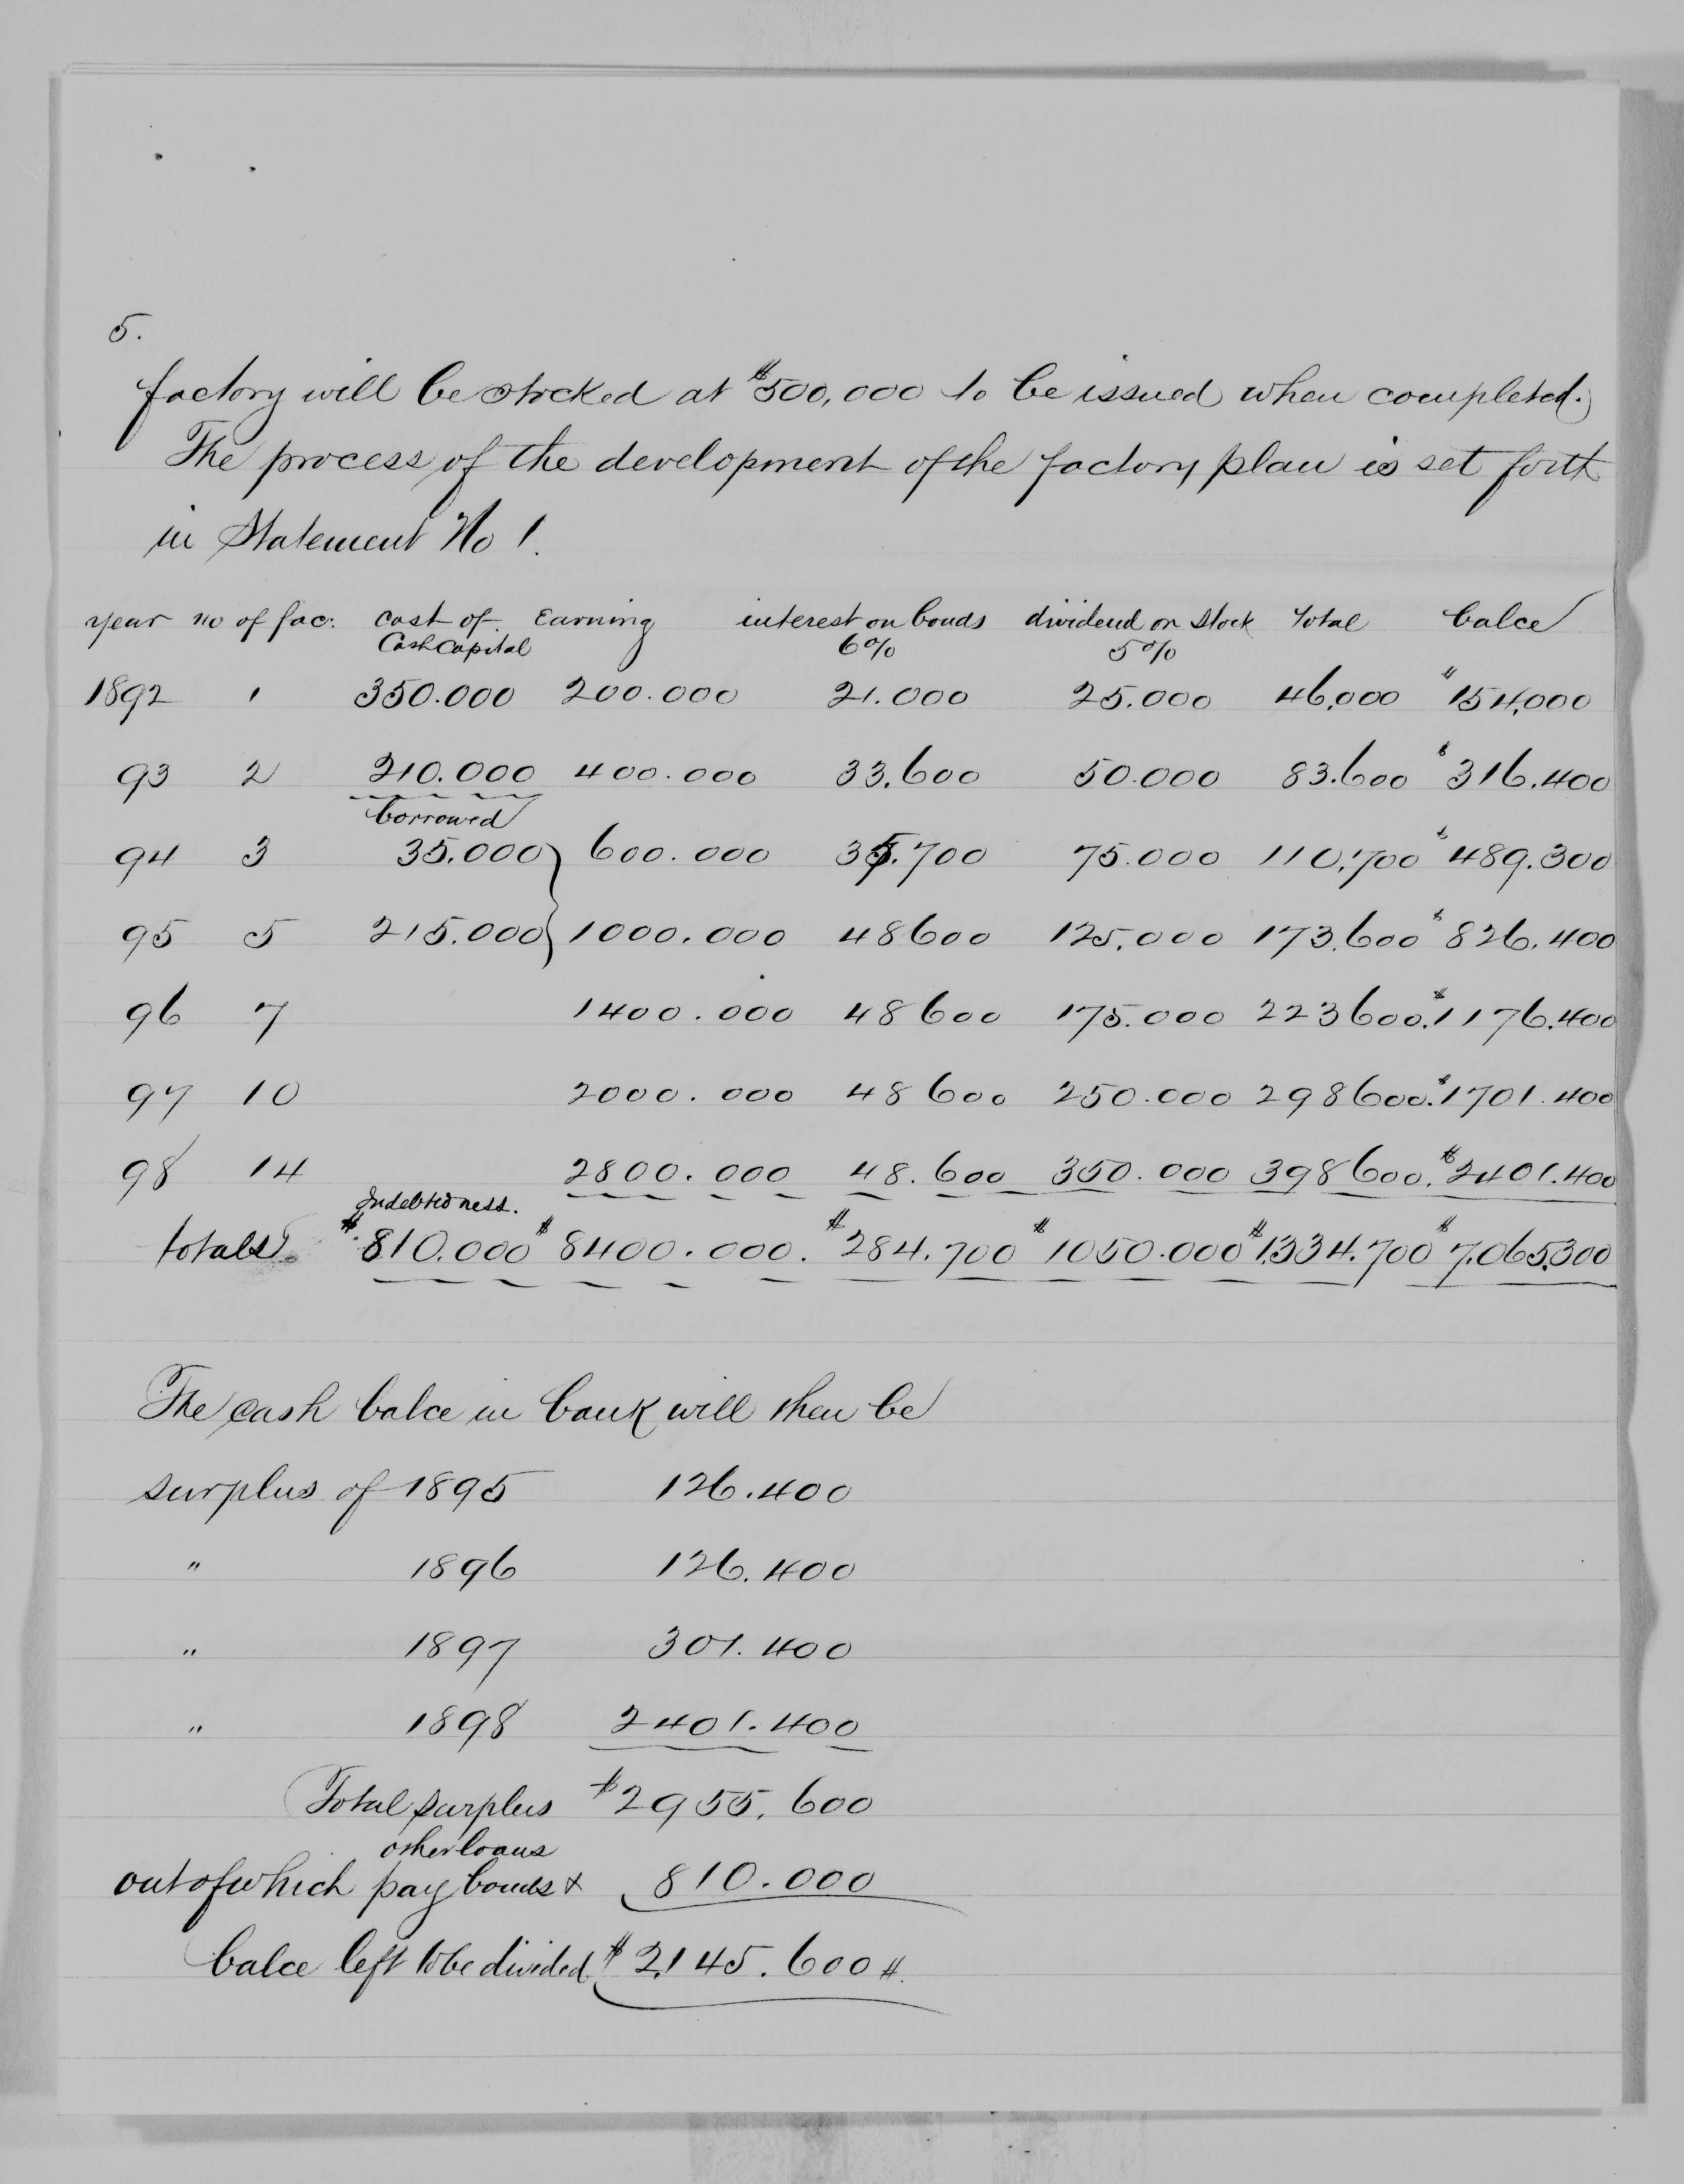 5.
factory will be stocked at $500,000 to be issued when completed.
The process of the development of the factory plan is set forth
in Statement No 1.
year no of fac: cost of Earning interest on bonds dividend on Stock Total balce
Cash Capital 6% 5%
1892 1 350.000 200.000 21.000 25.000 46,000 "154,000
93 2 210.000 400.000 33.600 50.000 83.600 $316.400
borrowed
94 3 35.000 600.000 35.700 75.000 110,700 $489.300
95 5 215.000 1000.000 48600 125.000 173.600 $826.400
96 7 1400.000 48600 175.000 223600. $1176.400
97 10 2000.000 48600 250.000 298600. $1701.400
98 14 2800.000 48.600 350.000 398600. $2401.400
Indebtedness.
totals $810.000 $8400.000. $284.700 $1050.000 $1,334.700 $7.065.300
The cash balce in bank will then be
surplus of 1895 126.400
" 1896 126.400
" 1897 301.400
" 1898 2401.400
Total surplus $2955.600
other loans
out of which pay bonds & 810.000
balce left to be divided. $2,145.600 #.